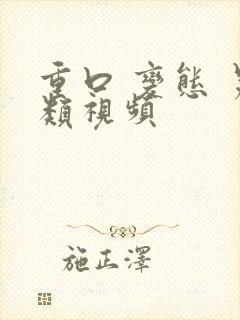 重口 變態 另
類視頻
施正澤